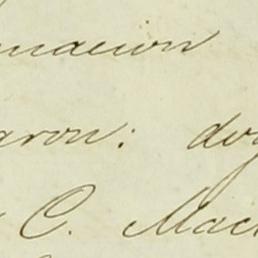 macion
aron: doy
C. Mac